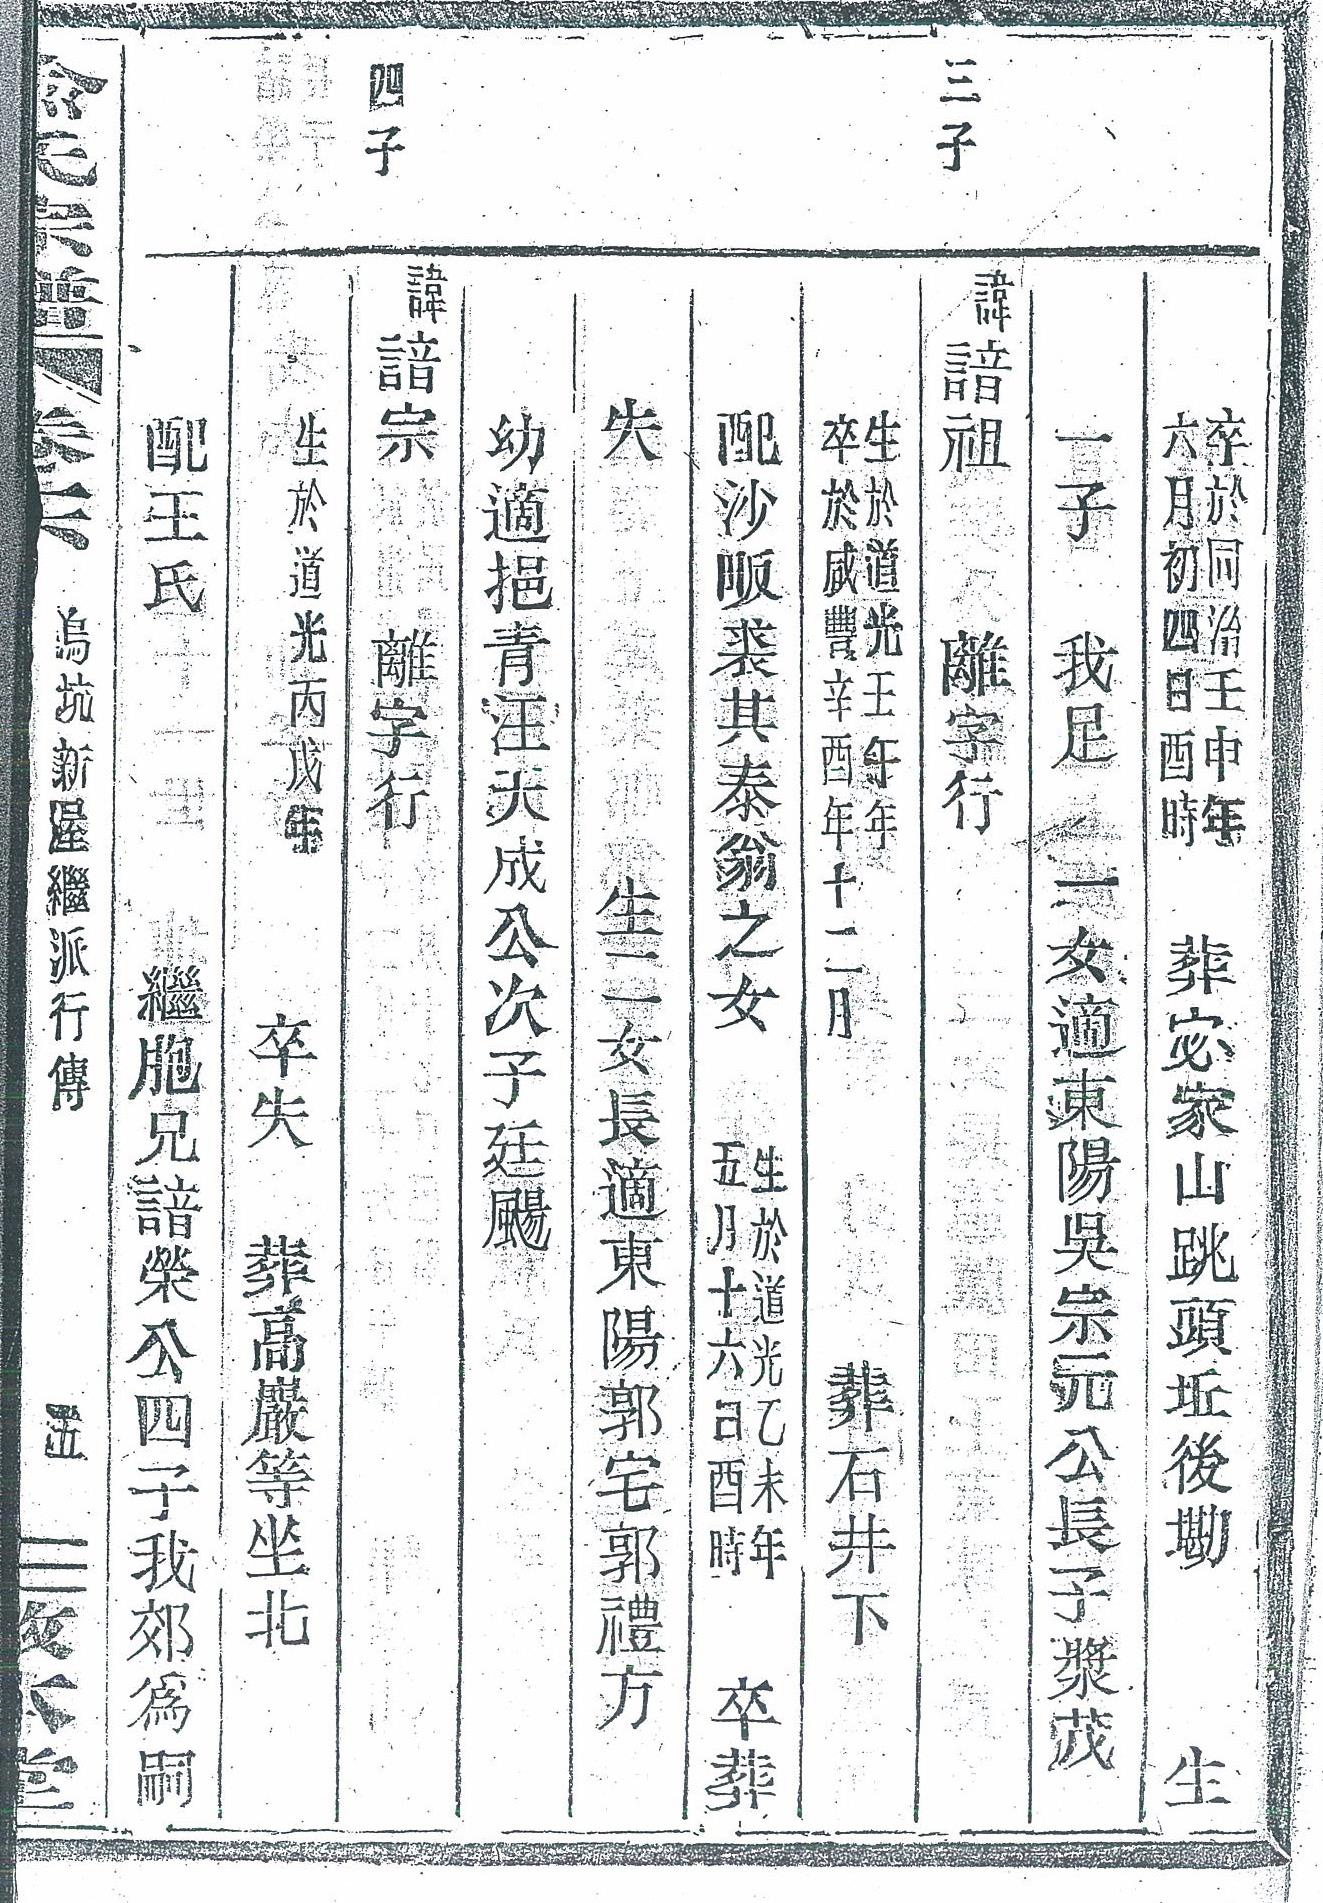 卒於同治壬申年
六月初四日酉時
葬宓家山跳頭坵後墈 生
一子 我足 一女適東陽吳宗元公長子漿茂
三子
諱諳祖 離字行
生於道光壬午年
卒於咸豐辛酉年十二月
葬石井下
配沙畈裘其泰翁之女
生於道光乙未年
五月十六日酉時
卒葬
失 生二女長適東陽郭宅郭禮方
幼適挹青汪天成公次子廷颺
四子
諱諳宗 離字行
生於道光丙戌年 卒失 葬高巖等坐北
配王氏 繼胞兄諳榮公四子我郊為嗣
氏宗譜 卷六 塢坑新屋繼派行傳 五 敦本堂